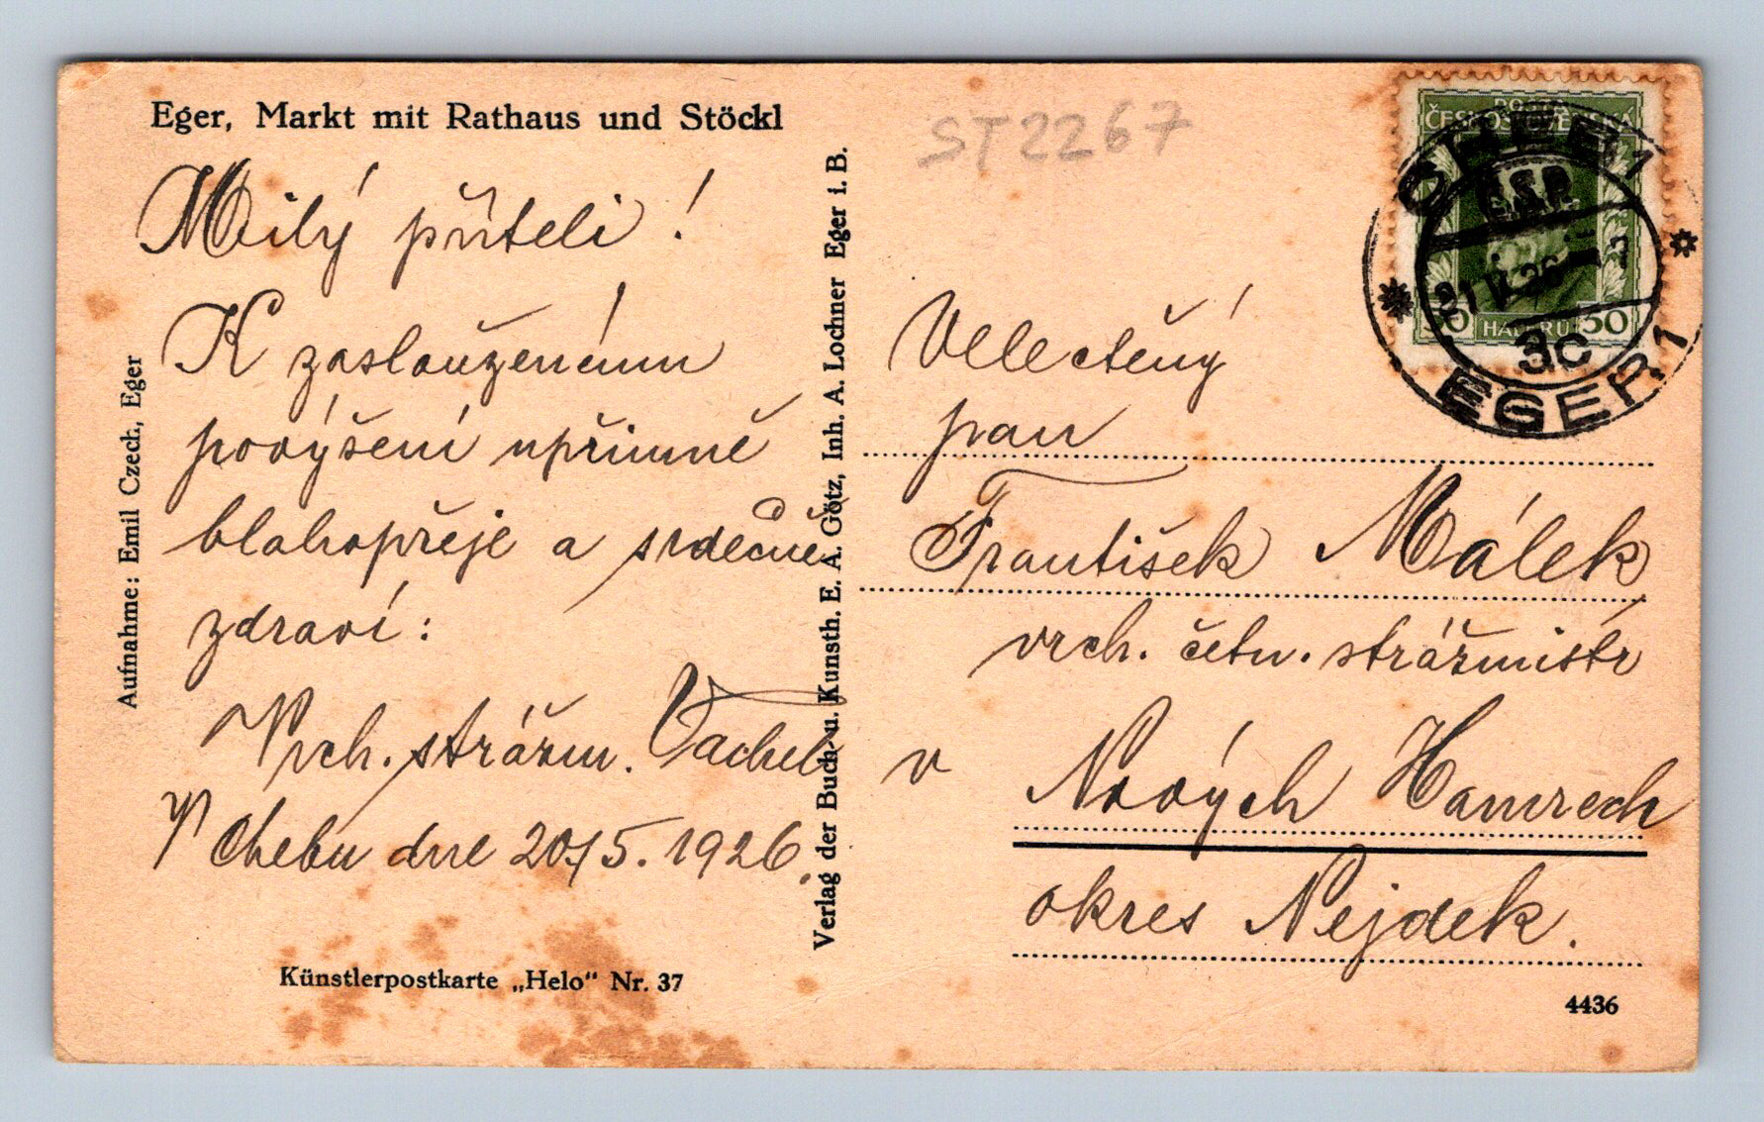 Eger, Markt mit Rathaus und Stöckl
Milý příteli!
K zaslouženému
povýšení upřímně
blahopřeje a srdečně
zdraví:
Vrch. strážm.
V Chebu dne 20/5. 1926.
Künstlerpostkarte „Helo“ Nr. 37
Aufnahme: Emil Czech, Eger
Verlag der Buch- u. Kunsth. E. A. Götz, Inh. A. Lochner Eger i. B.
ST2267
POŠTA
ČESKOSLOVENSKÁ
50 HALÉŘŮ 50
CHEB 1
Č.S.P.
21 V 26
3c
EGER 1
Velectěný
pan
František Málek
vrch. četn. strážmistr
v Nových Hamrech
okres Nejdek.
4436